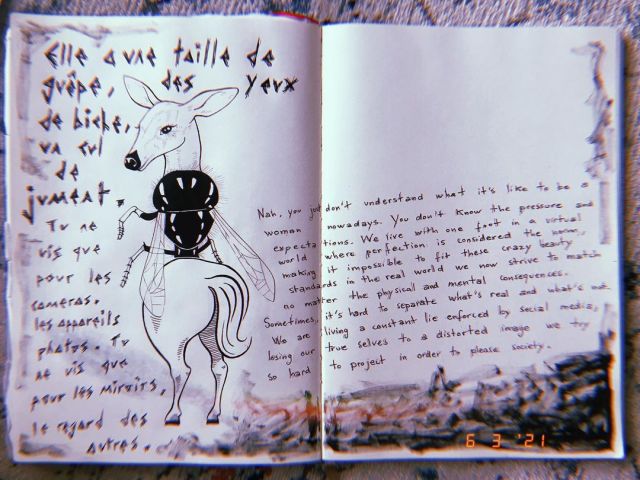 Elle a une taille de
guêpe, des yeux
de biche,
un cul
de
jument
Tu ne
vis que
pour les
cameras,
les appareils
photos. Tu
ne vis que
pour les miroirs,
le regard des
autres.
Nah, you just don't understand what it's like to be a
woman nowadays. You don't know the pressure and
expectations. We live with one foot in a virtual
world where perfection is considered the norm,
making it impossible to fit these crazy beauty
standards in the real world we now strive to match
no matter the physical and mental consequences.
Sometimes, it's hard to separate what's real and what's not.
We are living a constant lie enforced by social media,
losing our true selves to a distorted image we try
so hard to project in order to please society.
6 3 '21